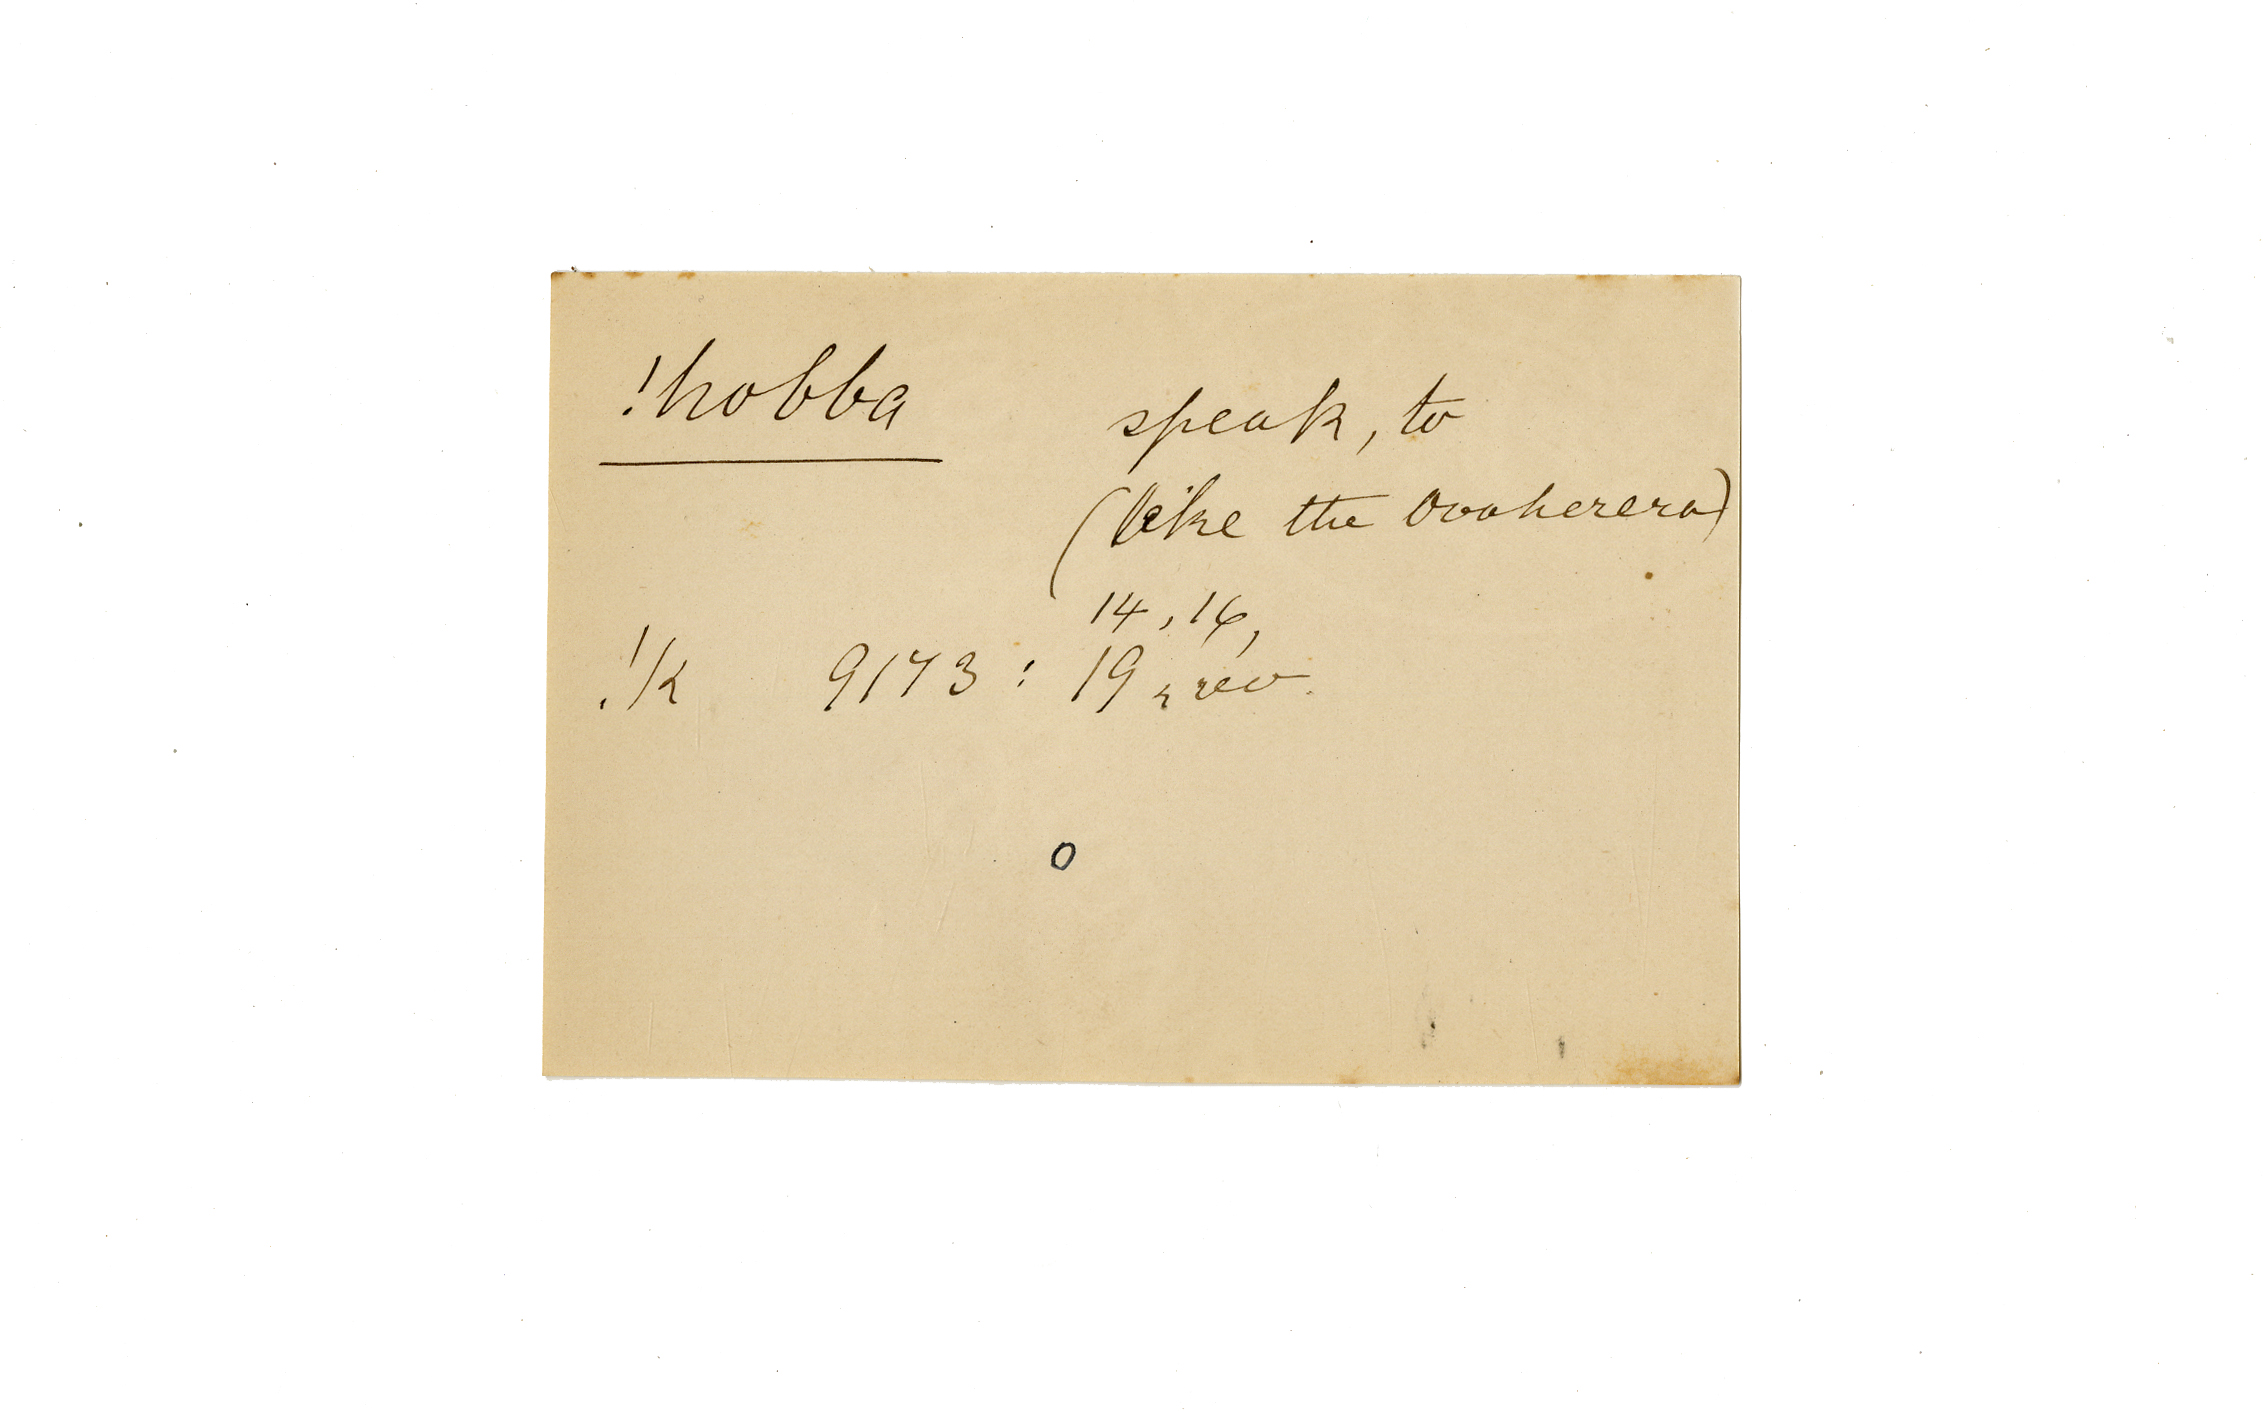 !hobba
speak, to
(like the Ovaherera)
14, 16,
!k 9173: 19, rev.
o